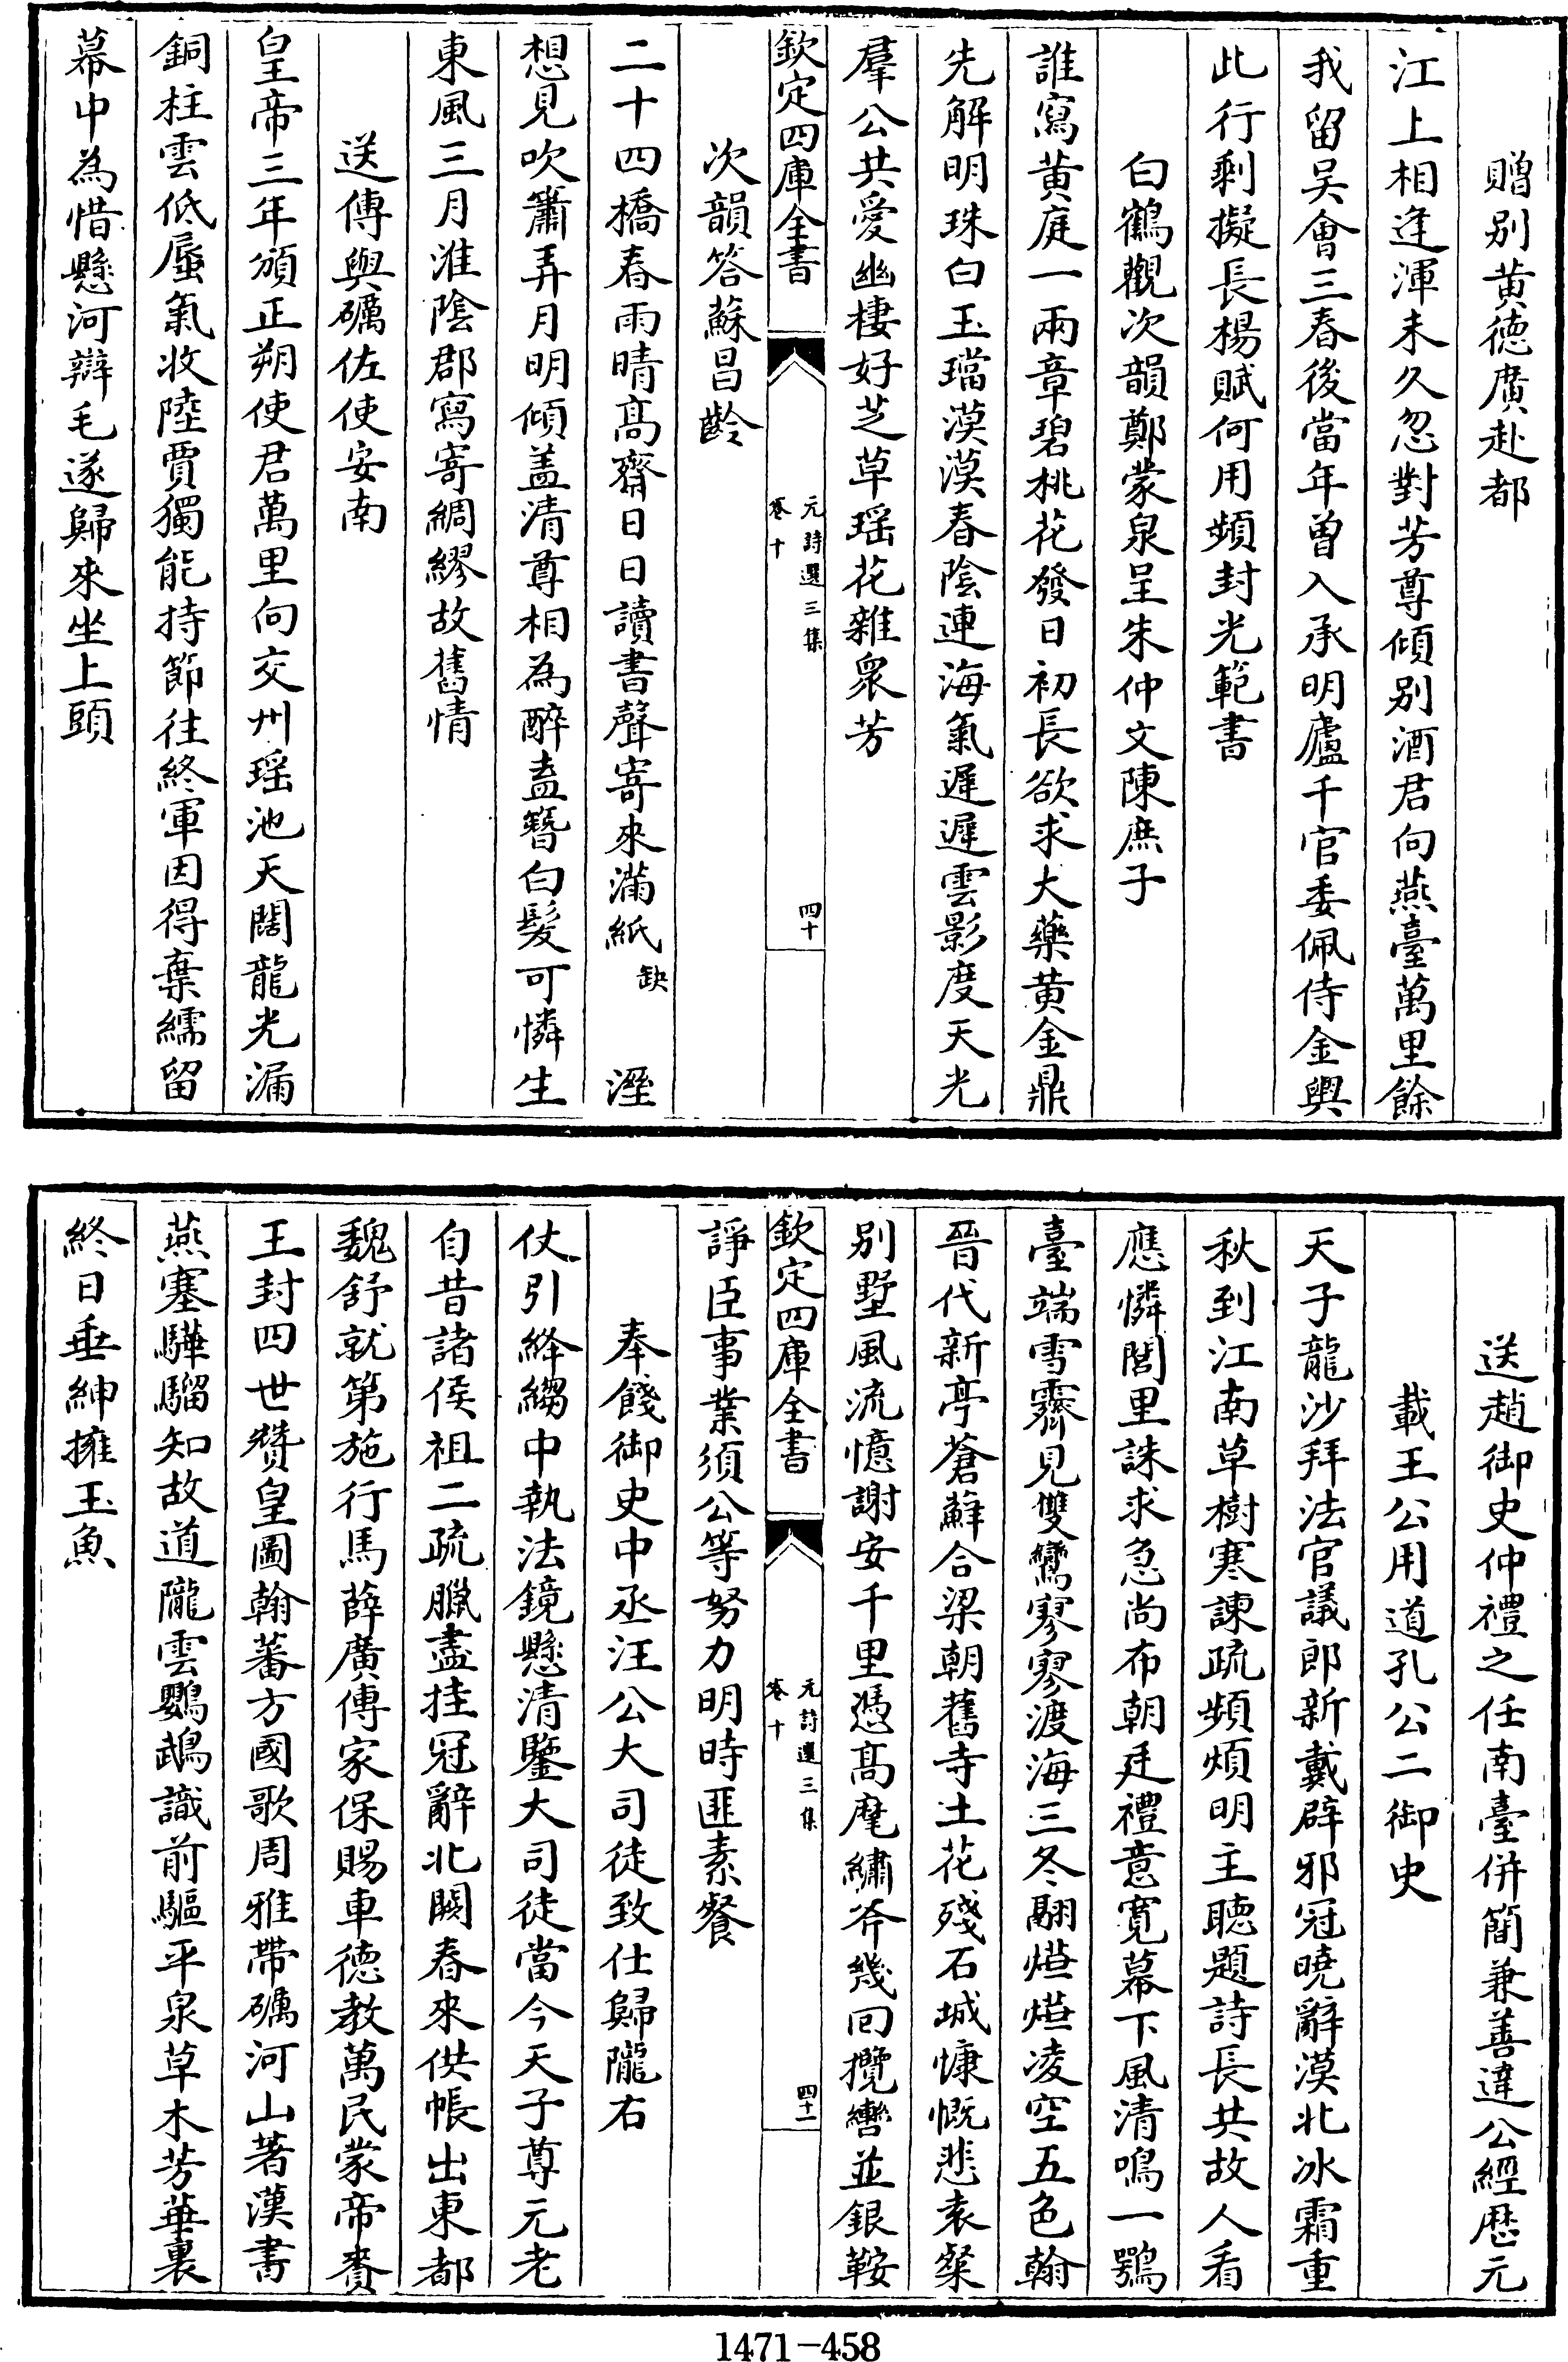 贈别黄徳廣赴都
江上相逢渾未久忽對芳尊傾别酒君向燕臺萬里餘
我留吴會三春後當年曽入承明廬千官委佩侍金輿
此行剰擬長楊賦何用頻封光範書
白鶴觀次韻鄭蒙泉呈朱仲文陳庶子
誰寫黄庭一兩章碧桃花發日初長欲求大藥黄金鼎
先解明珠白玉璫漠漠春陰連海氣遲遲雲影度天光
羣公共愛幽棲好芝草瑶花雜衆芳
欽定四庫全書
元詩選三集
卷十
四十
次韻答蘇昌齡
二十四橋春雨晴髙齋日日讀書聲寄來滿紙缺 溼
想見吹簫弄月明傾盖清尊相為醉盍簪白髪可憐生
東風三月淮陰郡寫寄綢繆故舊情
送傅與礪佐使安南
皇帝三年頒正朔使君萬里向交州瑶池天闊龍光漏
銅柱雲低蜃氣收陸賈獨能持節往終軍因得棄繻留
幕中為惜懸河辯毛遂歸來坐上頭
送趙御史仲禮之任南臺併簡兼善達公經歴元
載王公用道孔公二御史
天子龍沙拜法官議郎新戴辟邪冠曉辭漠北冰霜重
秋到江南草樹寒諫疏頻煩明主聴題詩長共故人看
應憐閭里誅求急尚布朝廷禮意寛幕下風清鳴一鶚
臺端雪霽見雙鸞寥寥渡海三冬翮熾熾凌空五色翰
晉代新亭蒼蘚合梁朝舊寺土花殘石城慷慨悲袁粲
别墅風流憶謝安千里憑髙麾繡斧幾回攬轡並銀鞍
欽定四庫全書
元詩選三集
卷十
四十一
諍臣事業須公等努力明時匪素餐
奉餞御史中丞汪公大司徒致仕歸隴右
仗引絳縐中執法鏡懸清鑒大司徒當今天子尊元老
自昔諸侯祖二疏臘盡挂冠辭北闕春來供帳出東都
魏舒就第施行馬薛廣傳家保賜車德教萬民蒙帝賚
王封四世贊皇圖翰蕃方國歌周雅帶礪河山著漢書
燕塞驊騮知故道隴雲鸚鵡識前驅平泉草木芳華裏
終日垂紳擁玉魚
1471-458